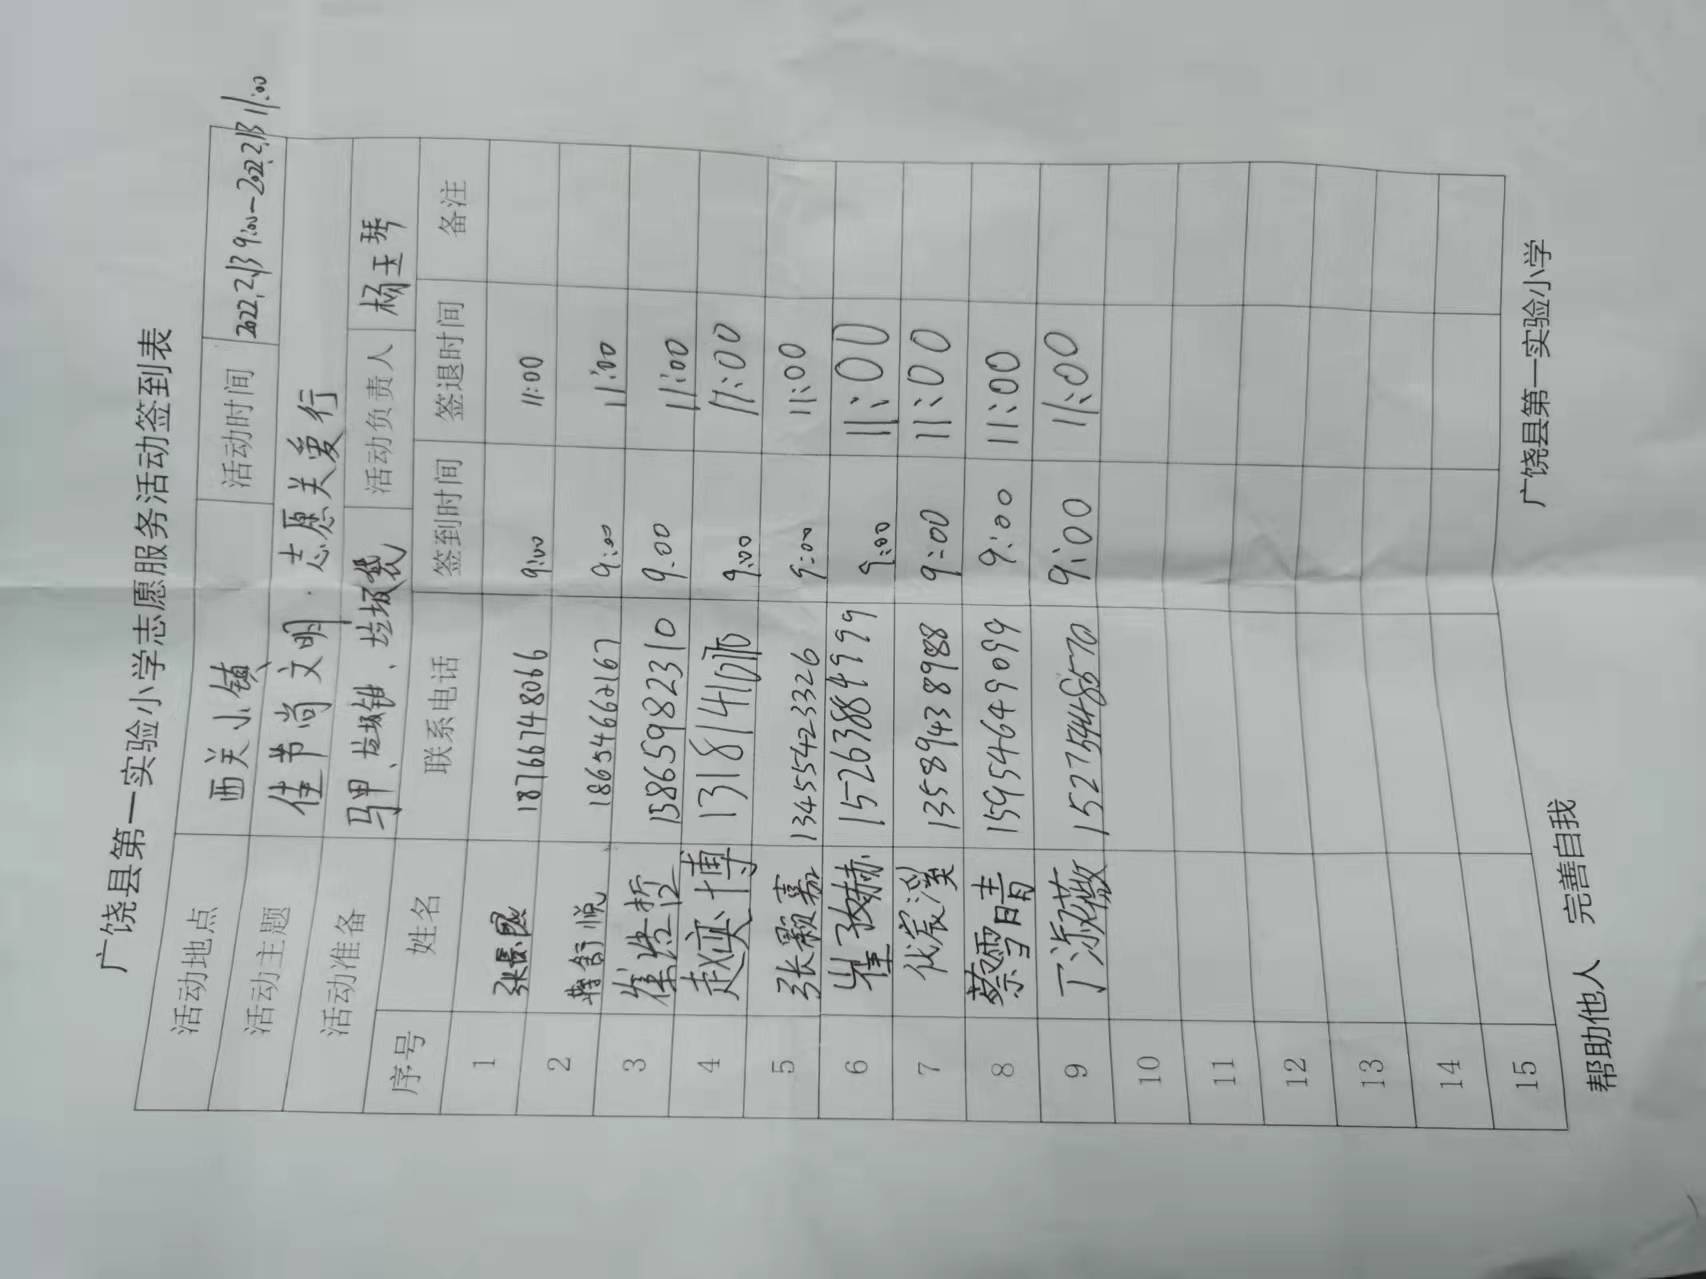 广饶县第一实验小学志愿服务活动签到表
活动地点 西关小镇 活动时间 2022.2.13 9:00-2022.2.13 11:00
活动主题 佳节尚文明·志愿关爱行
活动准备 马甲、垃圾钳、垃圾袋 活动负责人 杨玉琴
序号 姓名 联系电话 签到时间 签退时间 备注
1 18766748066 9:00 11:00
2 韩舒悦 18654662167 9:00 11:00
3 崔浩哲 13865982310 9.00 11:00
4 赵奕博 9:00 11:00
5 张颢嘉 13455423326 9:00 11:00
6 15263884999 9:00 11:00
7 代宸溪 13589438988 9:00 11:00
8 蔡雪晴 15954649099 9:00 11:00
9 丁添薇 15275448570 9:00 11:00
10
11
12
13
14
15
帮助他人 完善自我 广饶县第一实验小学